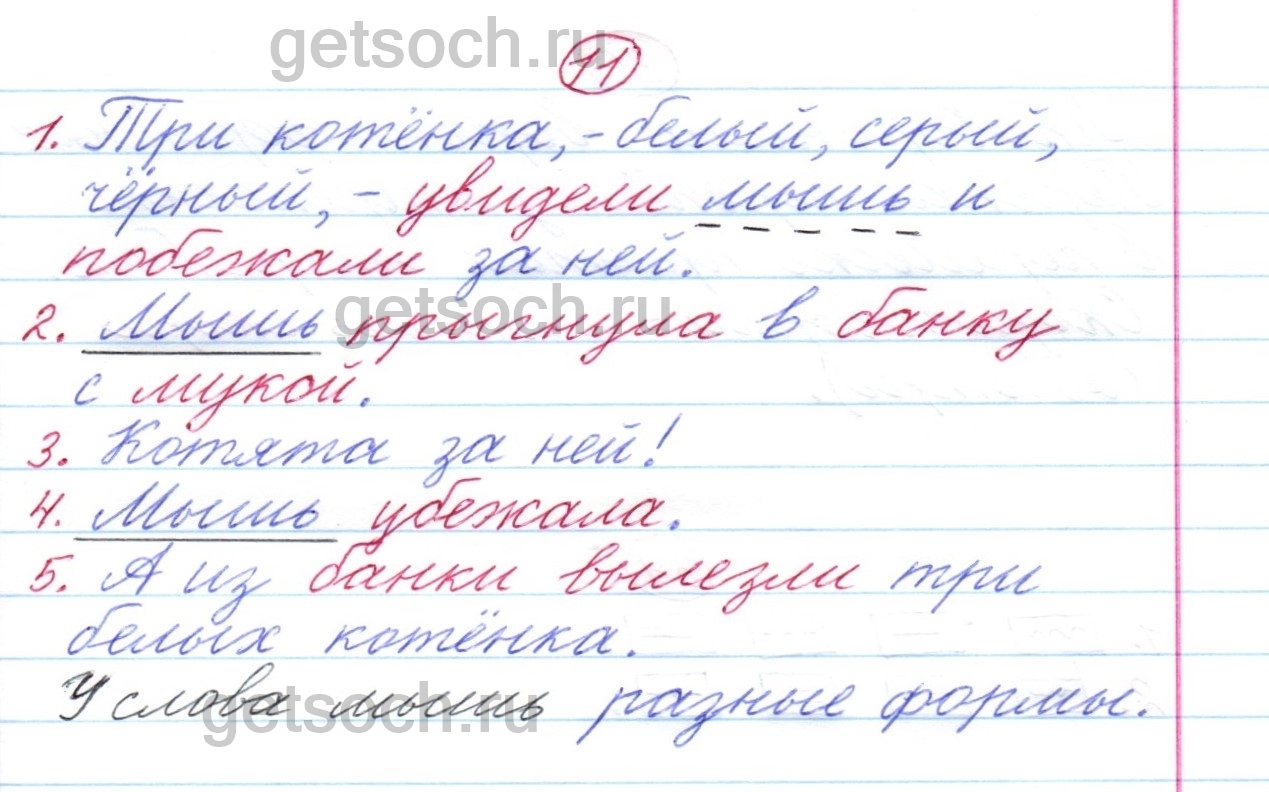 getsoch.ru
11
1. Три котёнка, - белый, серый,
чёрный, - увидели мышь и
побежали за ней.
getsoch.ru
2. Мышь прыгнула в банку
с мукой.
3. Котята за ней!
4. Мышь убежала.
5. А из банки вылезли три
белых котёнка.
У слова мышь разные формы.
getsoch.ru